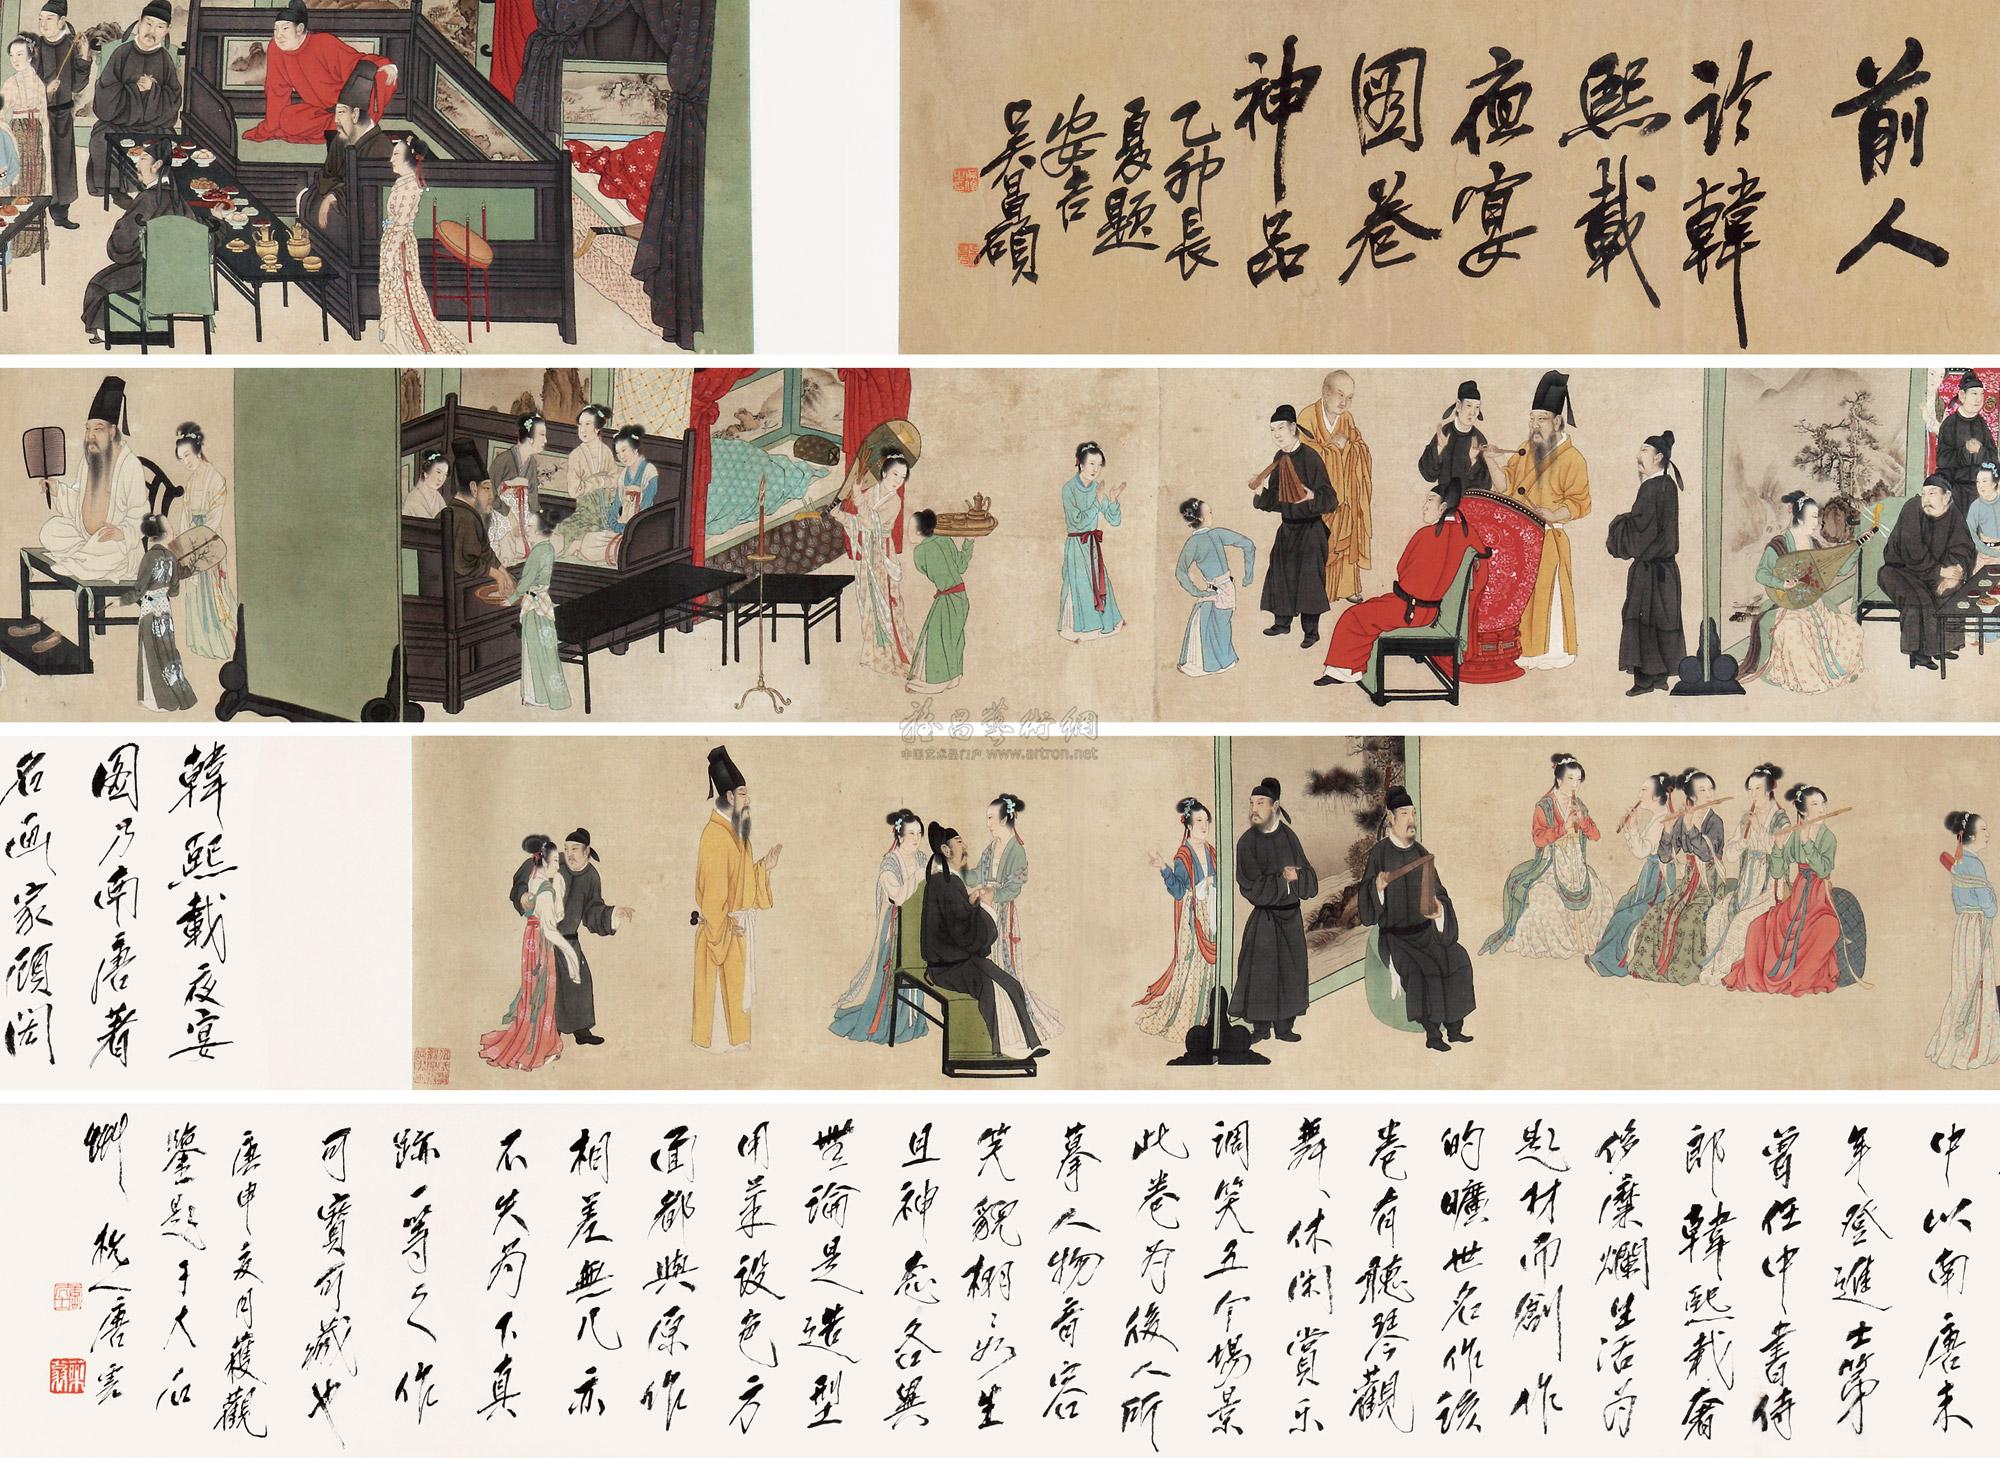 前人
韓
熙載
夜宴
圖卷
神品
乙卯長
夏題
安吉
吳昌碩
雅昌藝術網
中国艺术品门户 www.artron.net
韓熙載夜宴
图乃南唐著
名画家顾闳
中以南唐末
年登進士第
曾任中書侍
郎韓熙載奢
侈糜爛生活为
题材而創作
的曠世名作该
卷有聽琴觀
舞、休闲賞乐
调笑五个場景
此卷为後人所
摹人物音容
笑貌栩々如生
且神态各異
無論是造型
用筆設色方
面都與原作
相差無几亦
不失为下真
跡一等之作
可寶可藏也
庚申亥月獲觀
鑒题于大石
杭人唐雲